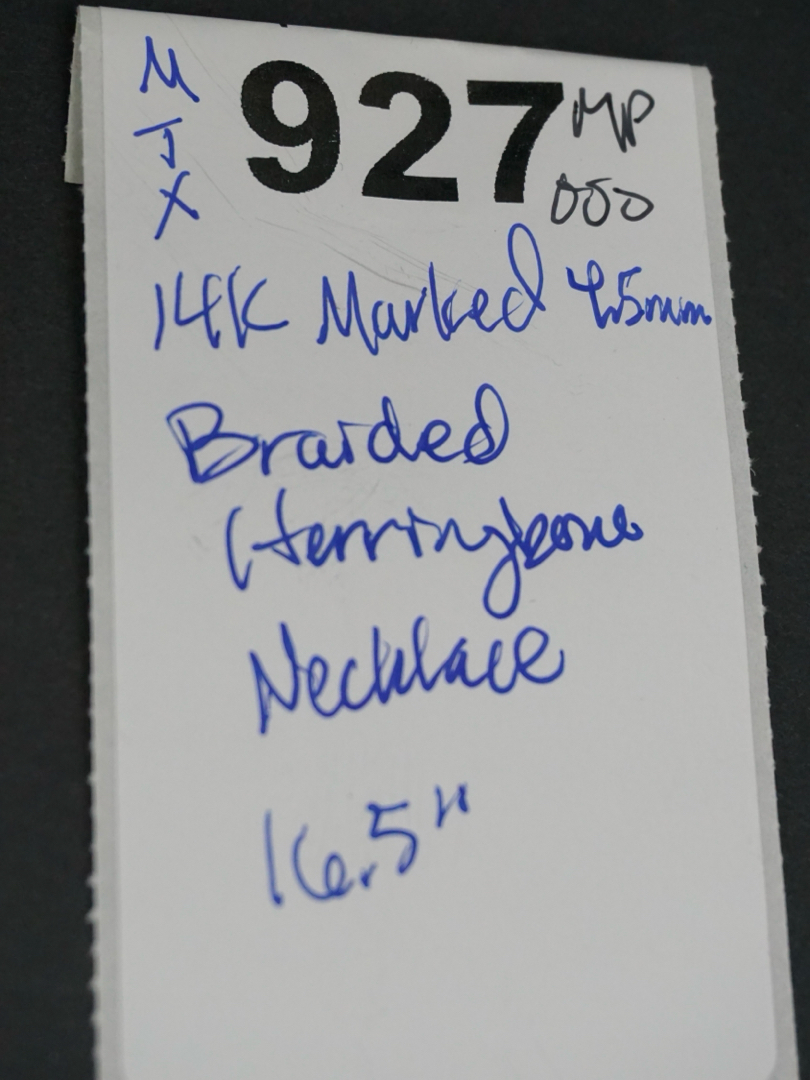 MJX
927
MP
000
14K Marked 4.5mm
Braided
Herringbone
Necklace
16.5"